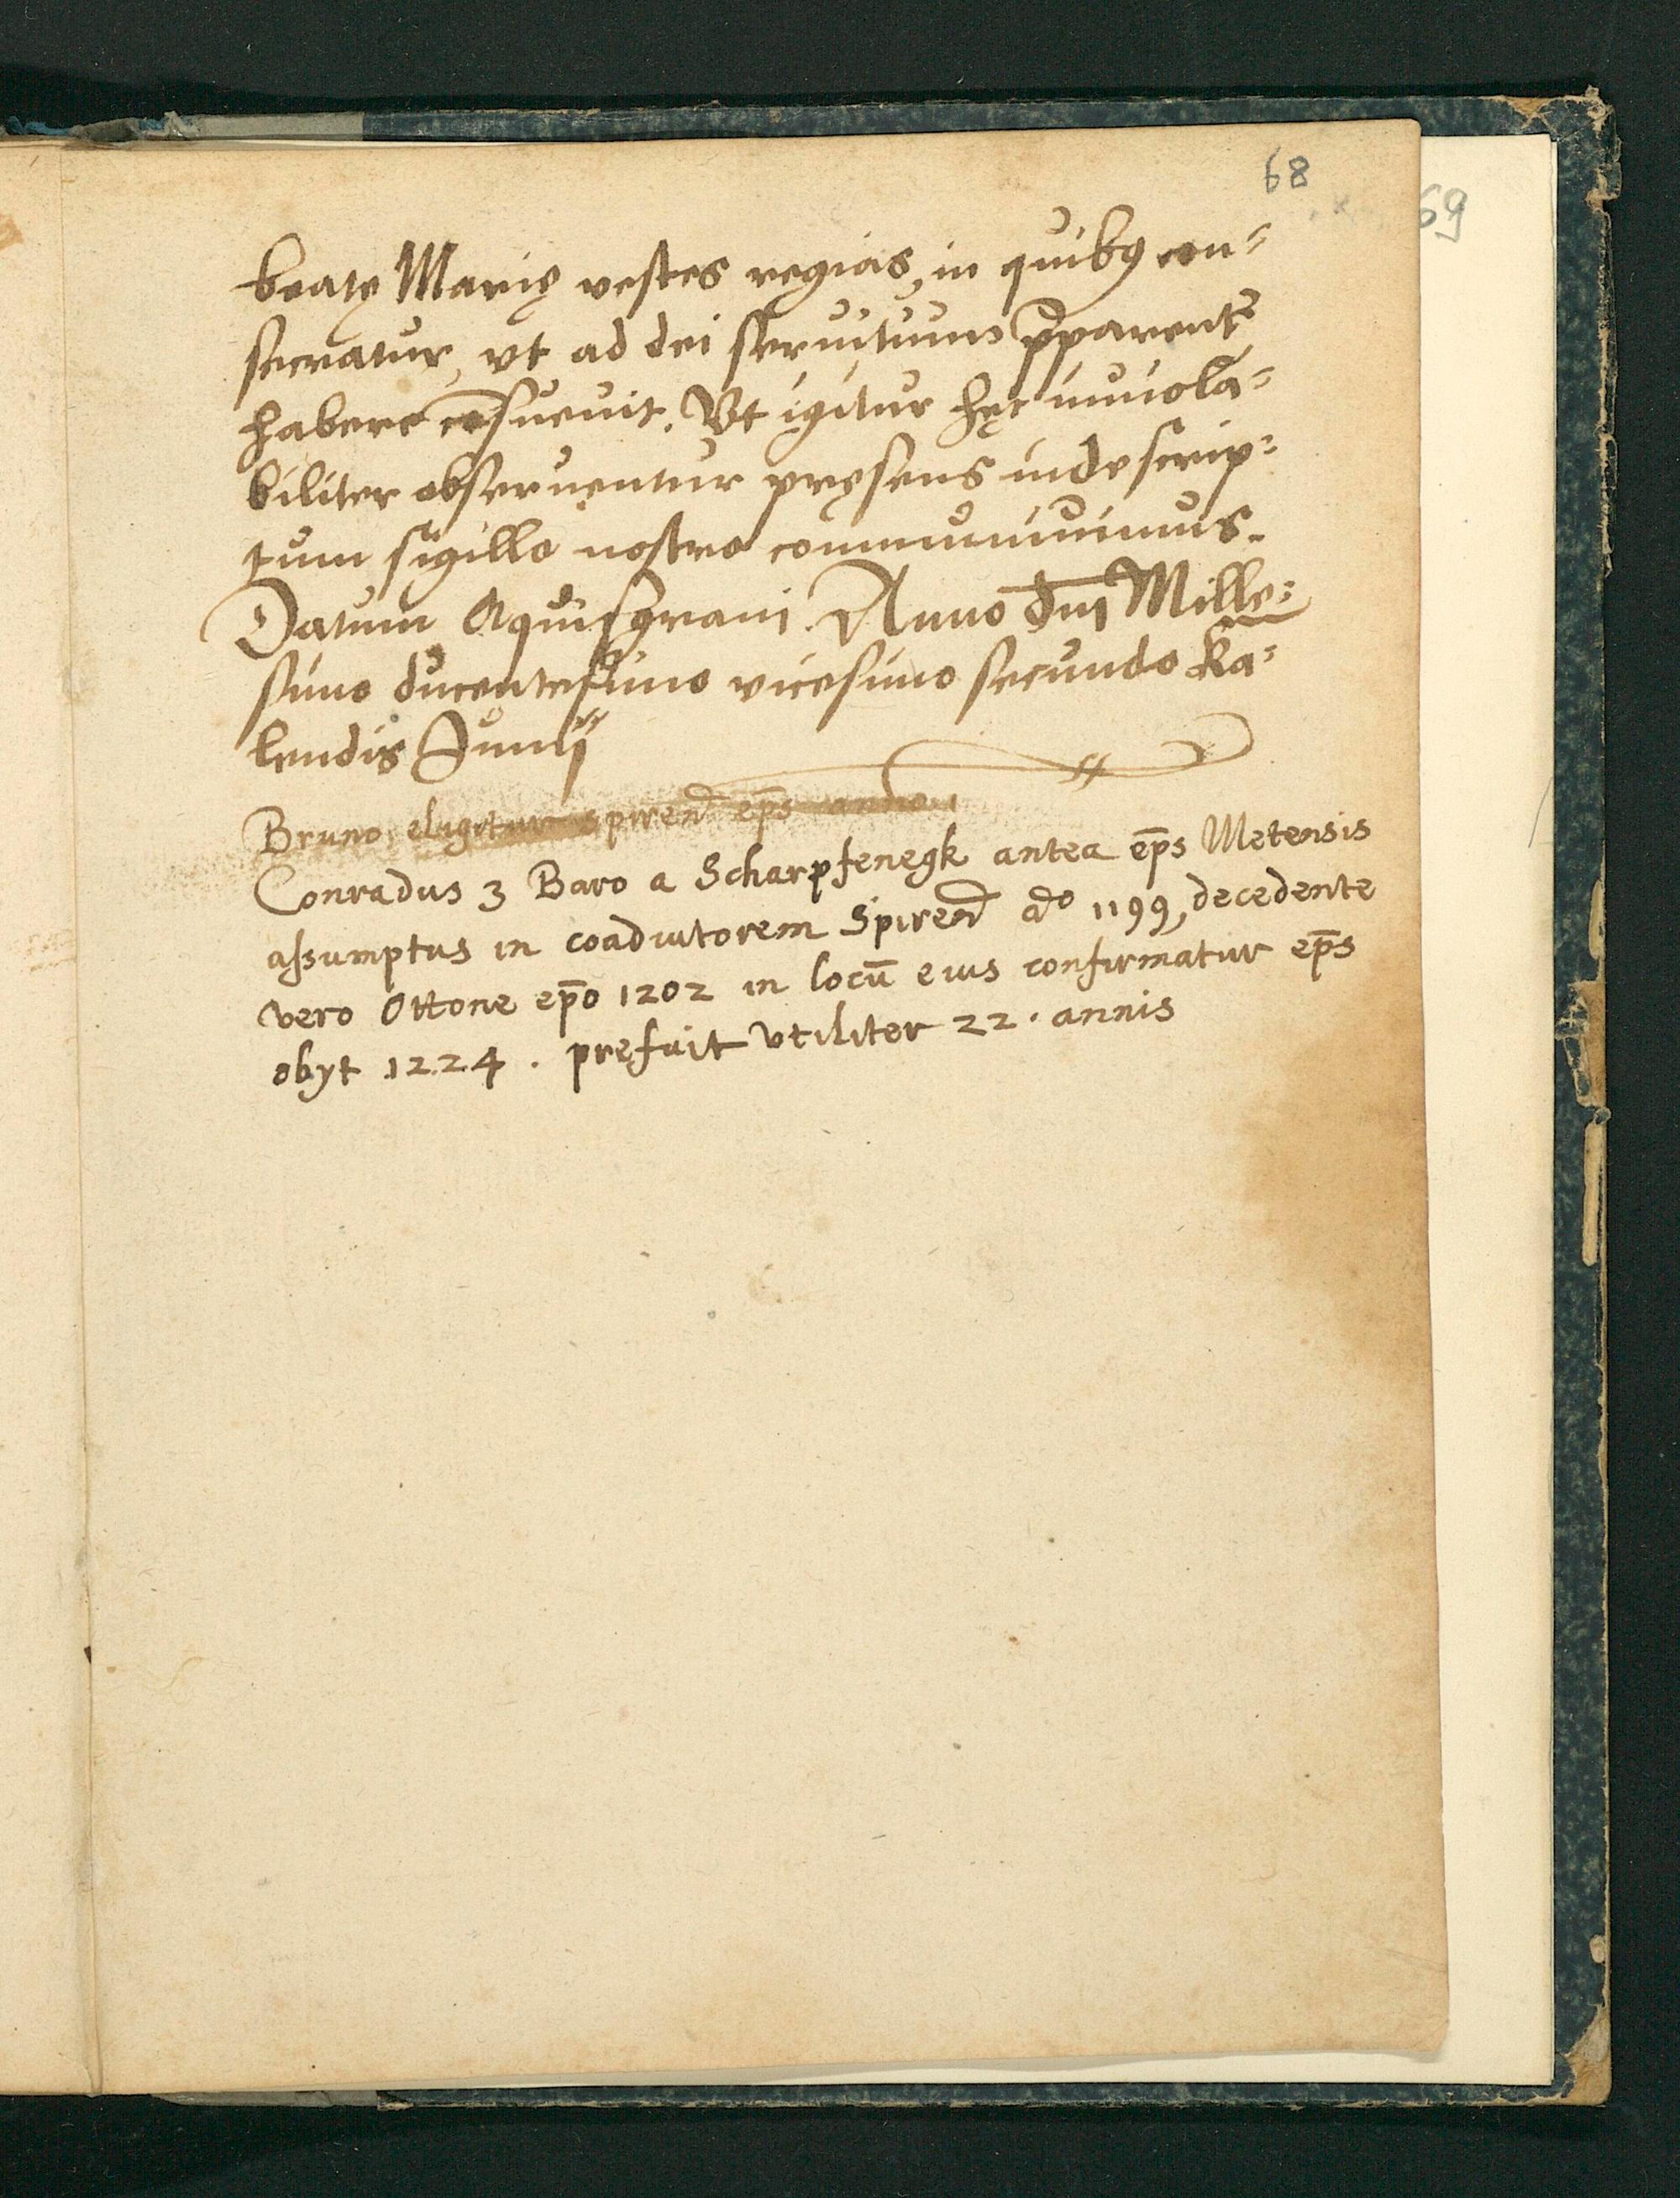 68
69
beatę Marię vestes regias, in quibꝯ con=
secratur, vt ad dei seruitium p̱parent᷑
habere cōsueuit. Vt igitur hęc inuiola=
biliter obseruentur pręsens inde scrip=
tum sigillo nostro communiuimus.
Datum Aquisgrani. Anno dn̄i Mille=
simo ducentesimo vicesimo secundo Ka=
lendis Junij
Bruno eligitur spiren̄ ep̄s anno 1
Conradus 3 Baro a Scharpfenegk antea ep̄s Metensis
assumptus in coadiutorem Spiren̄ aō 1199, decedente
vero Ottone ep̄o 1202 in locū eius confirmatur ep̄s
obyt 1224. pręfuit vtiliter 22. annis